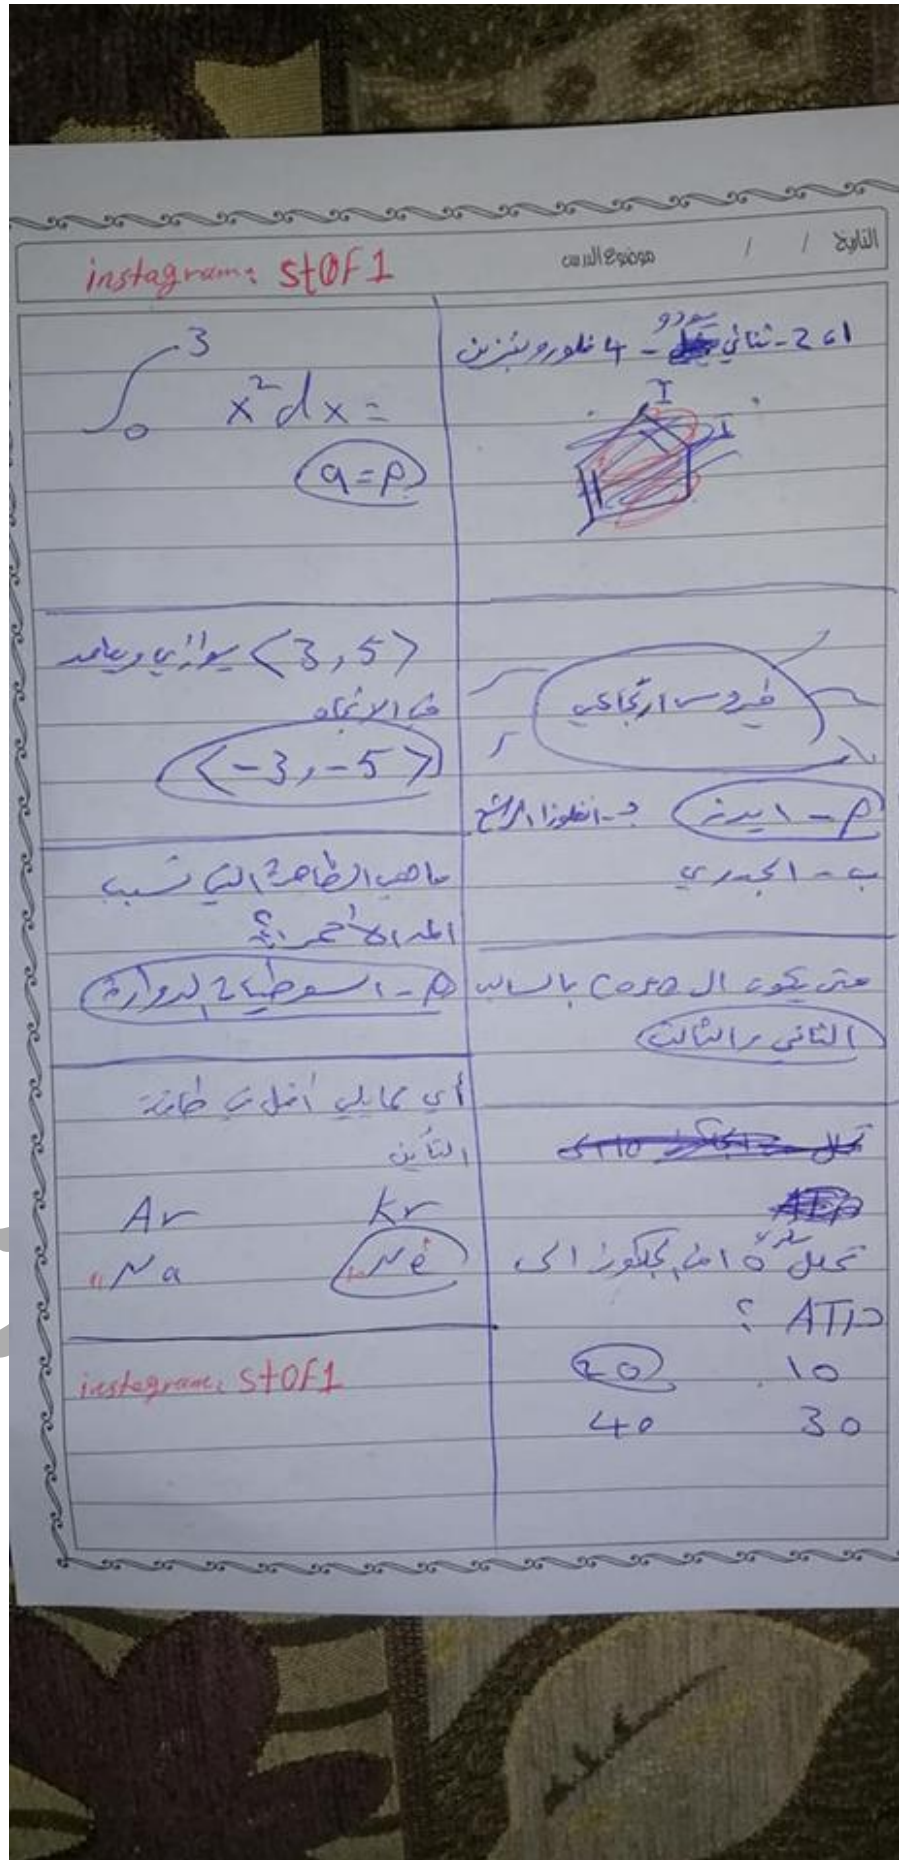 التاريخ / /
موضوع الدرس
instagram: stOF1
1، 2 - ثنائي يودو - 4 فلوروبنزين
I
I
فيروس ارتجاعي
أ - ايدز
ج - انفلونزا
ب - الجدري
متى يكون ال Cos بالسالب
الثاني والثالث
تحلل 5 من الجلكوز الى
ATP ؟
10
20
30
40
3
0
x² dx =
9 = أ
<3, 5> يوازي ويعاكس
في الاتجاه
<-3, -5>
ماهي الطاهرة التي تسبب
المد الأحمر ؟
أ - السوطيات الدوارة
أي مما يلي أعلى في طاقة
التأين
Kr
Ar
Ne
Na
instegram: stOF1